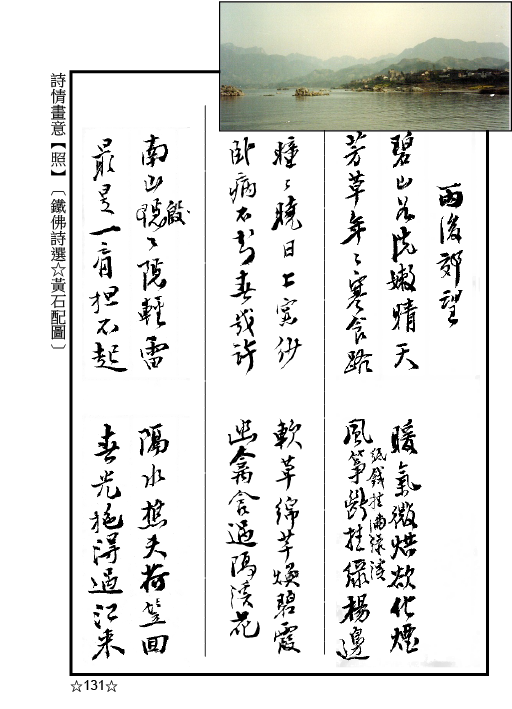 雨後郊望
碧山若洗嫩晴天 暖氣微烘欲化煙
芳草年〻寒食路 風箏斷挂綠楊邊
紙錢挂滿綠溪
瞳〻曉日上窗紗 軟草綿芊煥碧霞
臥病不知春幾許 幽禽含過隔溪花
南山隱〻隱輕雷 隔水樵夫荷笠回
殷
最是一肩担不起 春光拖得過江來
詩情畫意【照】〔鐵佛詩選☆黃石配圖〕
☆131☆